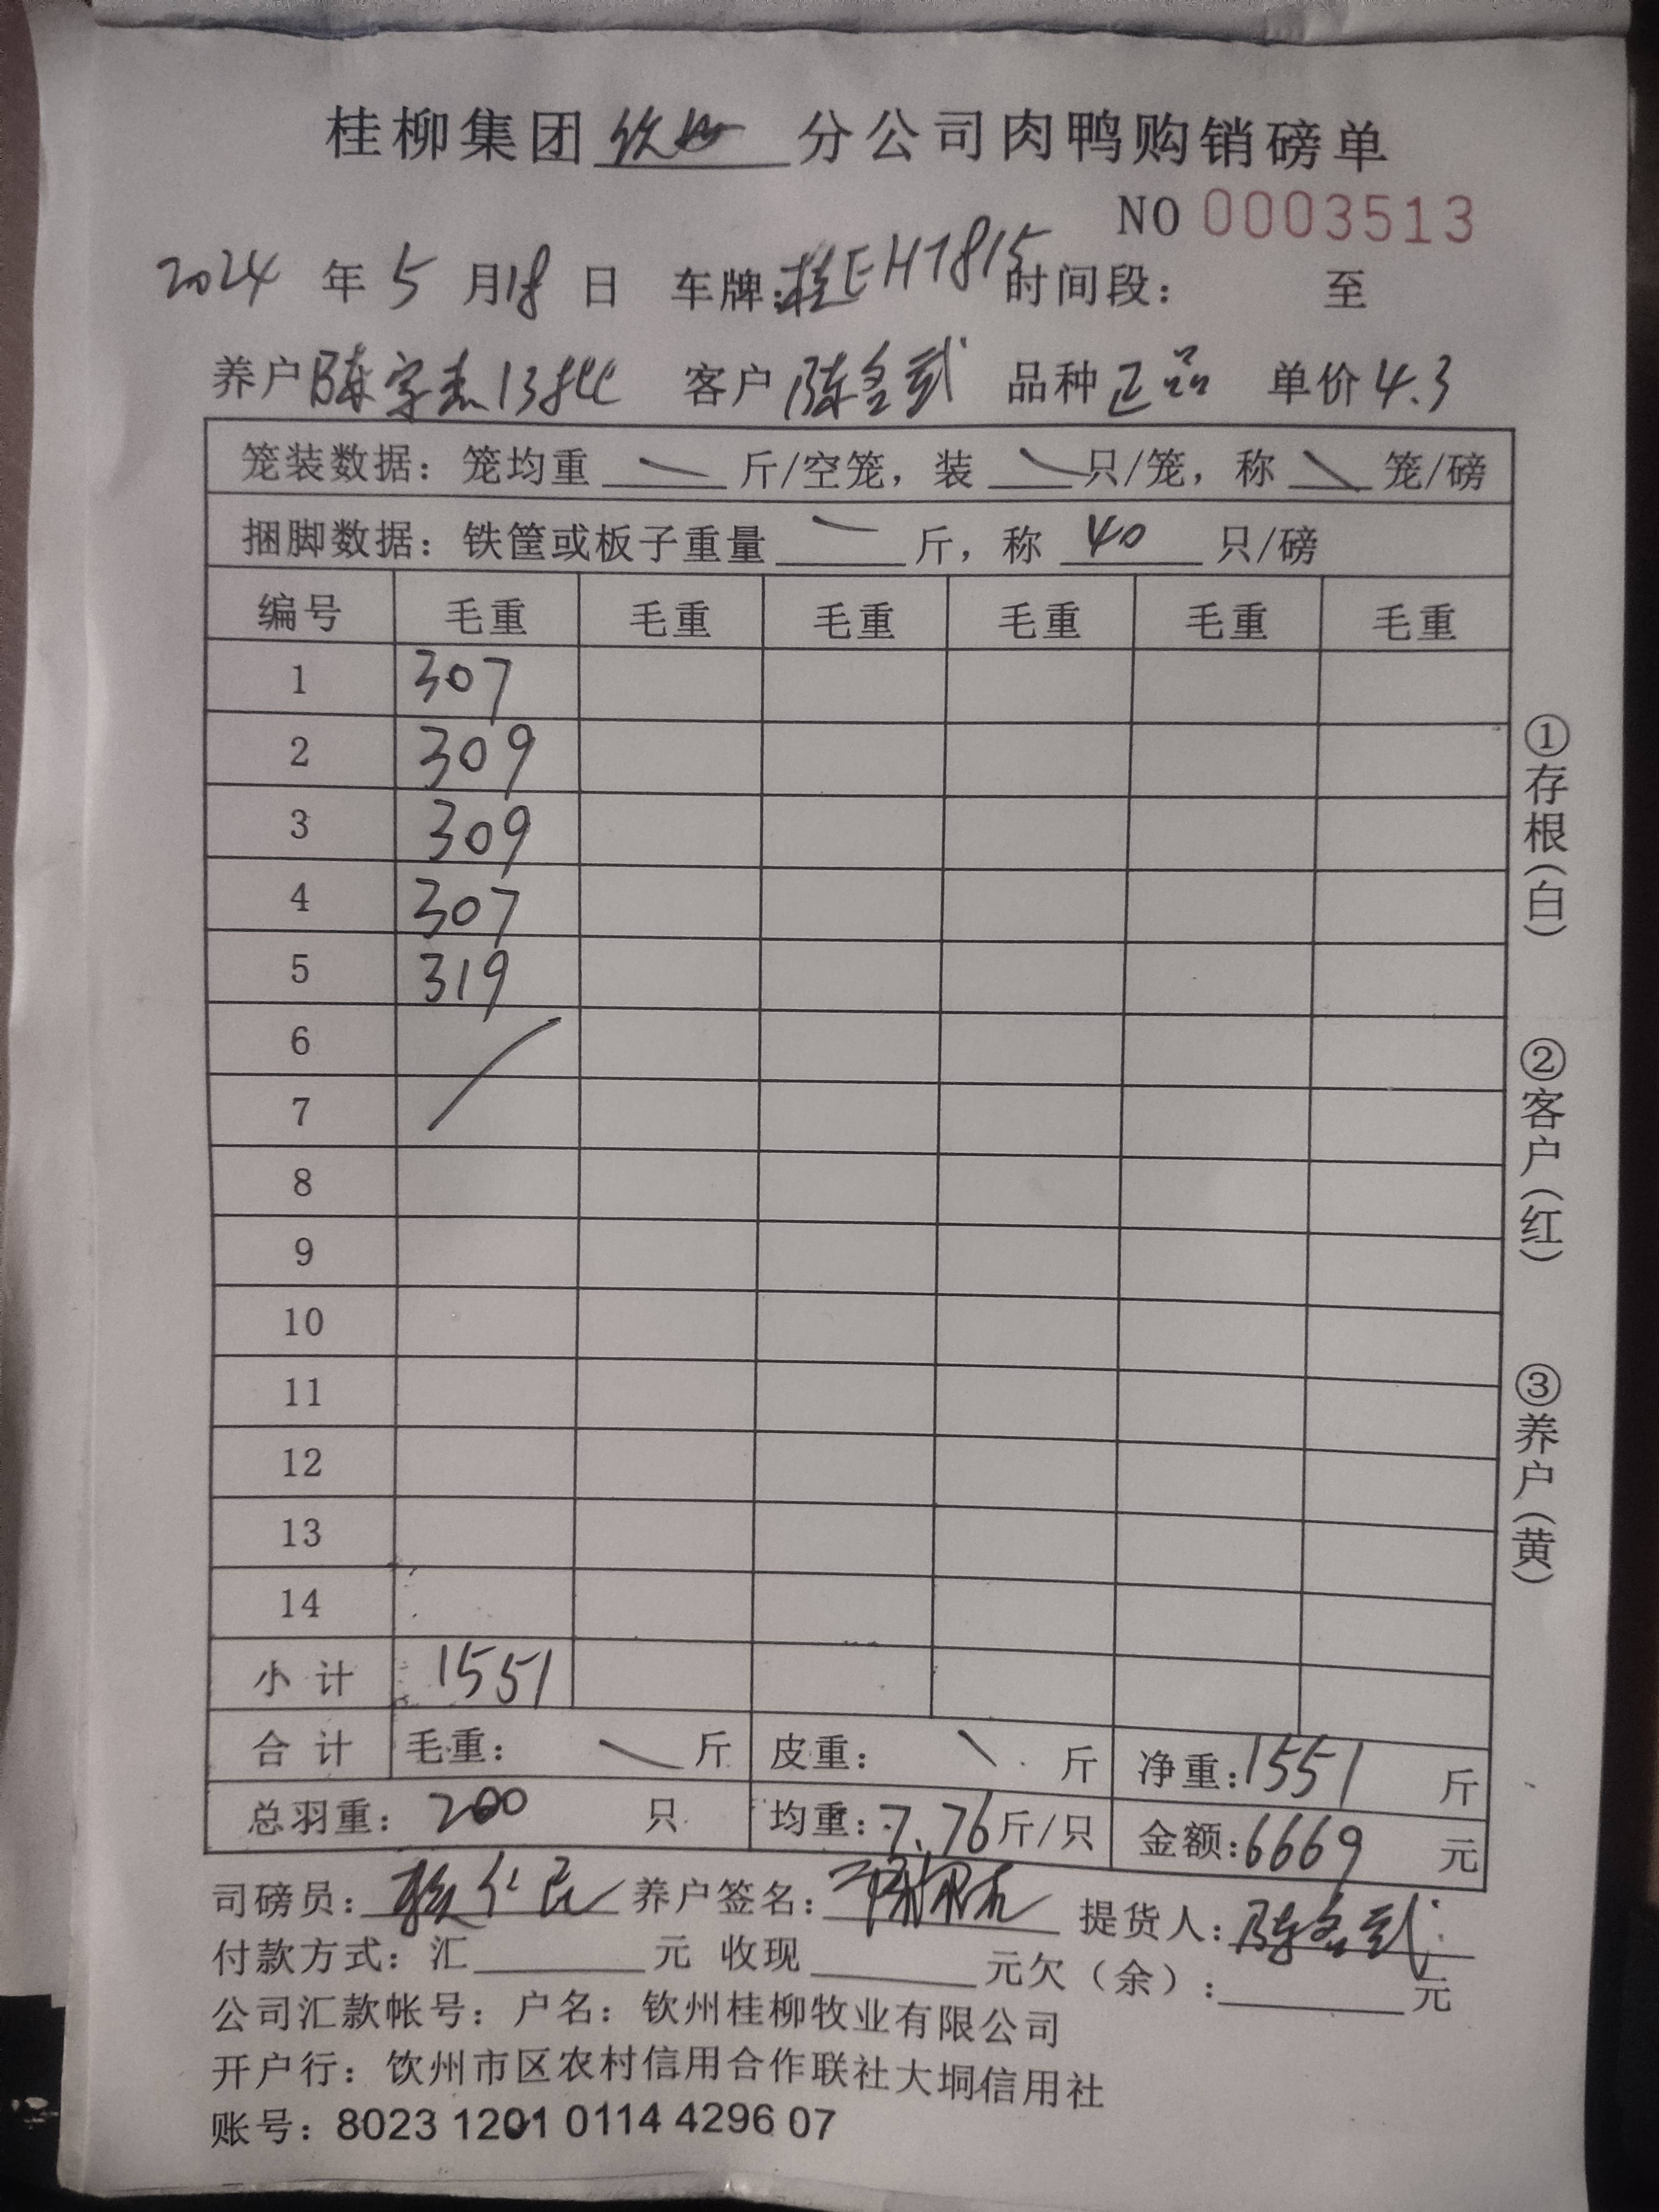 桂柳集团钦州分公司肉鸭购销磅单
NO 0003513
2024 年 5 月 18 日 车牌:桂EH7815 时间段: 至
养户 陈字杰13批 客户 陈金武 品种 正品 单价 4.3
笼装数据: 笼均重 斤/空笼, 装 只/笼, 称 笼/磅
捆脚数据: 铁筐或板子重量 斤, 称 40 只/磅
编号 毛重 毛重 毛重 毛重 毛重 毛重
1 307
2 309
3 309
4 307
5 319
6
7
8
9
10
11
12
13
14
小计 1551
合计 毛重: 斤 皮重: 斤 净重:1551 斤
总羽重: 200 只 均重:7.76斤/只 金额:6669 元
司磅员: 养户签名: 提货人:陈金武
付款方式: 汇 元 收现 元欠(余): 元
公司汇款帐号: 户名: 钦州桂柳牧业有限公司
开户行: 钦州市区农村信用合作联社大垌信用社
账号: 8023 1201 0114 4296 07
①存根(白)
②客户(红)
③养户(黄)